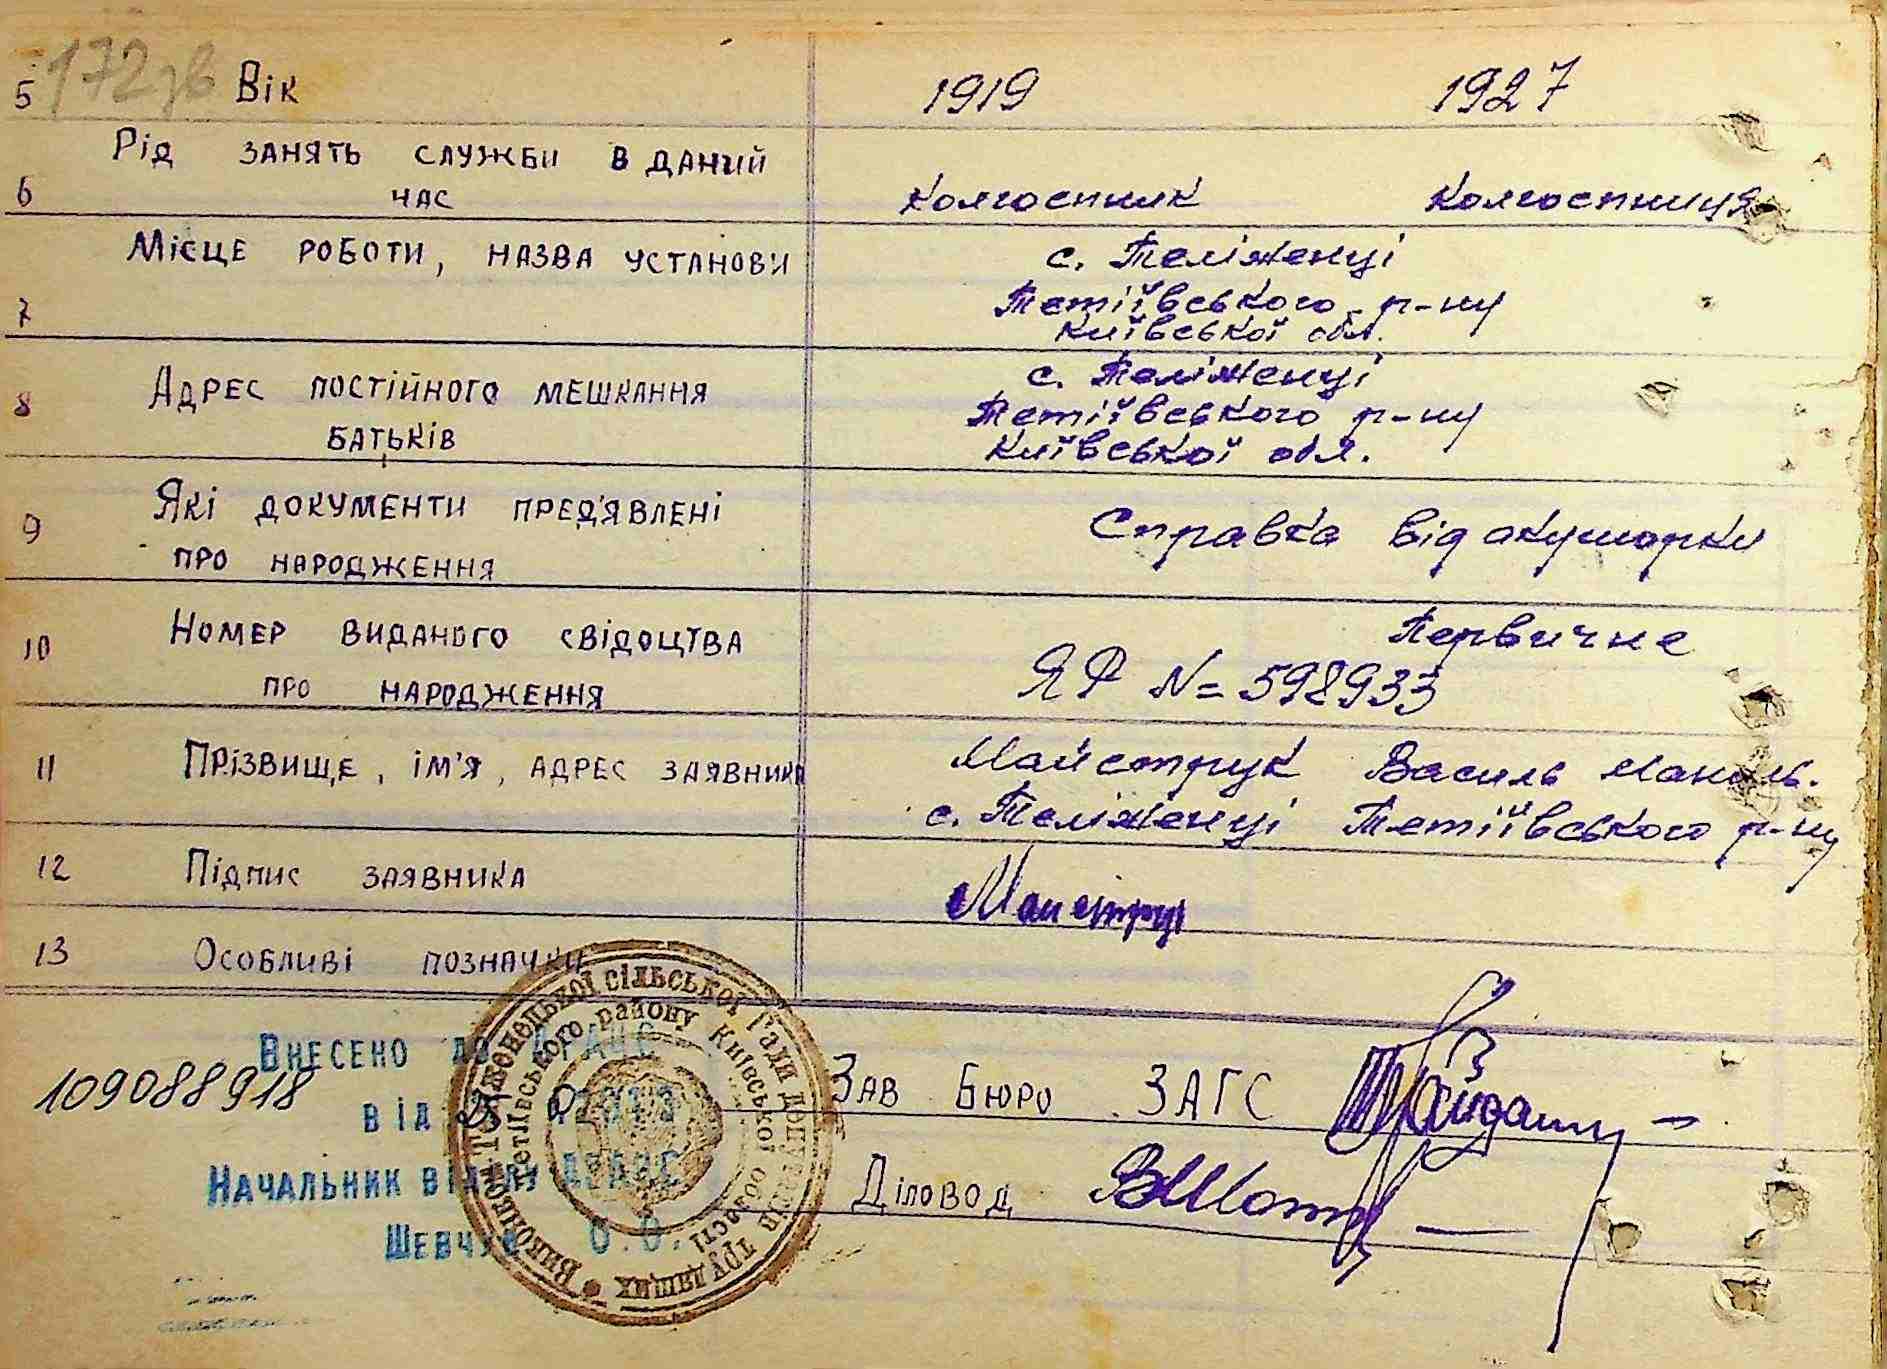 172зв
5 Вік 1919 1927
6 Рід занять служби в даний час колгоспник колгоспниця
7 Місце роботи, назва установи с. Теліженці
Тетіївського р-ну
Київської обл.
8 Адрес постійного мешкання с. Теліженці
батьків Тетіївського р-ну
Київської обл.
9 Які документи пред'явлені Справка від акушорки
про народження
10 Номер виданого свідоцтва Первичне
про народження ЯР N= 598933
11 Прізвище, ім'я, адрес заявника Майструк Василь Маноль.
с. Теліженці Тетіївського р-ну
12 Підпис заявника Майстру
13 Особливі позначки
Виконком Теліженецької сільської Ради депутатів трудящих
Тетіївського району Київської області
Внесено до ДРАЦС
109088918
від
Начальник відділу ДРАЦС
Шевчук О.О.
Зав Бюро ЗАГС
Діловод